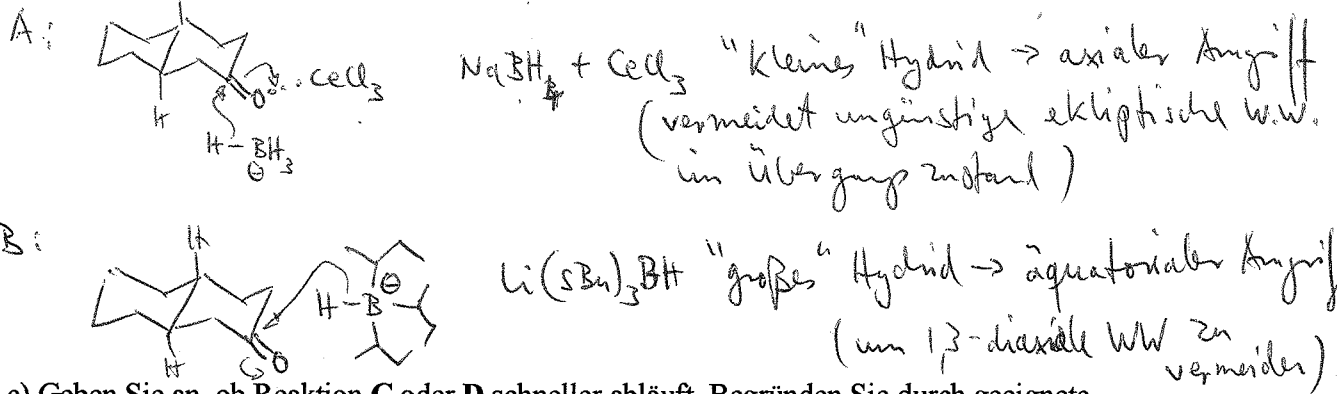 A:
CeCl3
NaBH4 + CeCl3 "kleines" Hydrid → axialer Angriff
(vermeidet ungünstige ekliptische W.W.
im Übergangszustand)
O
H
H-BH3
⊖
B:
H
H-B
⊖
Li(sBu)3BH "großes" Hydrid → äquatorialer Angriff
(um 1,3-diaxiale WW zu
vermeiden)
O
H
e) Geben Sie an, ob Reaktion C oder D schneller abläuft. Begründen Sie durch geeignete